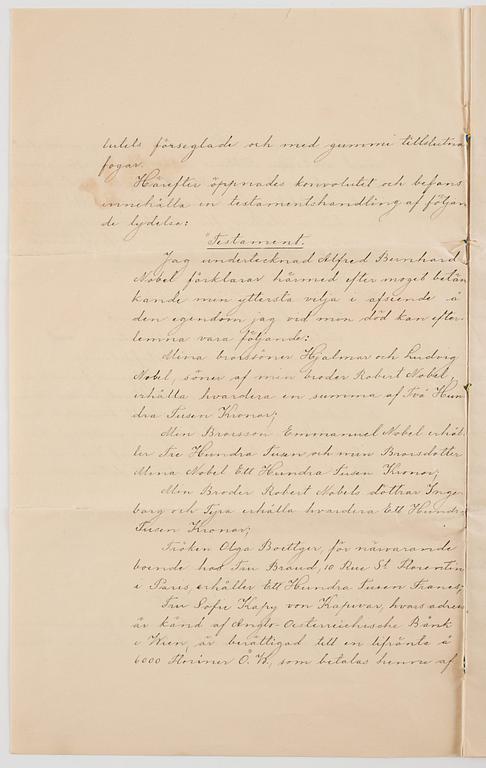 lutets förseglade och med gummi tillslutna
fogar.
Härefter öppnades konvolutet och befans
innehålla en testamentshandling af följan
de lydelse:
"Testament.
Jag undertecknad Alfred Bernhard
Nobel förklarar härmed efter moget betän
kande min yttersta vilja i afseende å
den egendom jag vid min död kan efter-
lemna vara följande:
Mina brorsöner Hjalmar och Ludvig
Nobel, söner af min broder Robert Nobel,
erhålla hvardera en summa af Två Hun
dra Tusen Kronor;
Min Brorsson Emmanuel Nobel erhål-
ler Tre Hundra Tusen och min Brorsdotter
Mina Nobel Ett Hundra Tusen Kronor;
Min Broder Robert Nobels döttrar Inge-
borg och Tyra erhålla hvardera Ett Hundra
Tusen Kronor;
Fröken Olga Boettger, för närvarande
boende hos Fru Brand, 10 Rue St Florentin
i Paris, erhåller Ett Hundra Tusen Francs;
Fru Sofie Kapy von Kapivar, hvars adress
är känd af Anglo-Oesterreichische Bank
i Wien, är berättigad till en lifränta å
6000 Floriner Ö.W., som betalas henne af